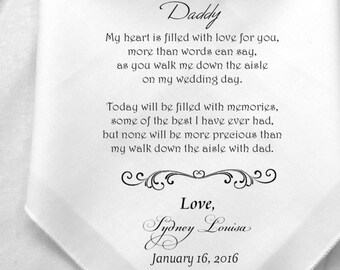 Daddy
My heart is filled with love for you,
more than words can say,
as you walk me down the aisle
on my wedding day.
Today will be filled with memories,
some of the best I have ever had,
but none will be more precious than
my walk down the aisle with dad.
Love,
Sydney Louisa
January 16, 2016